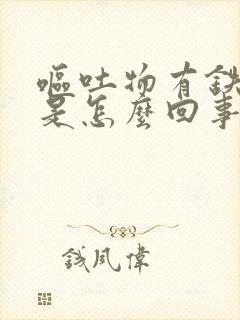 嘔吐物有鉄
是怎麼回事
錢風偉